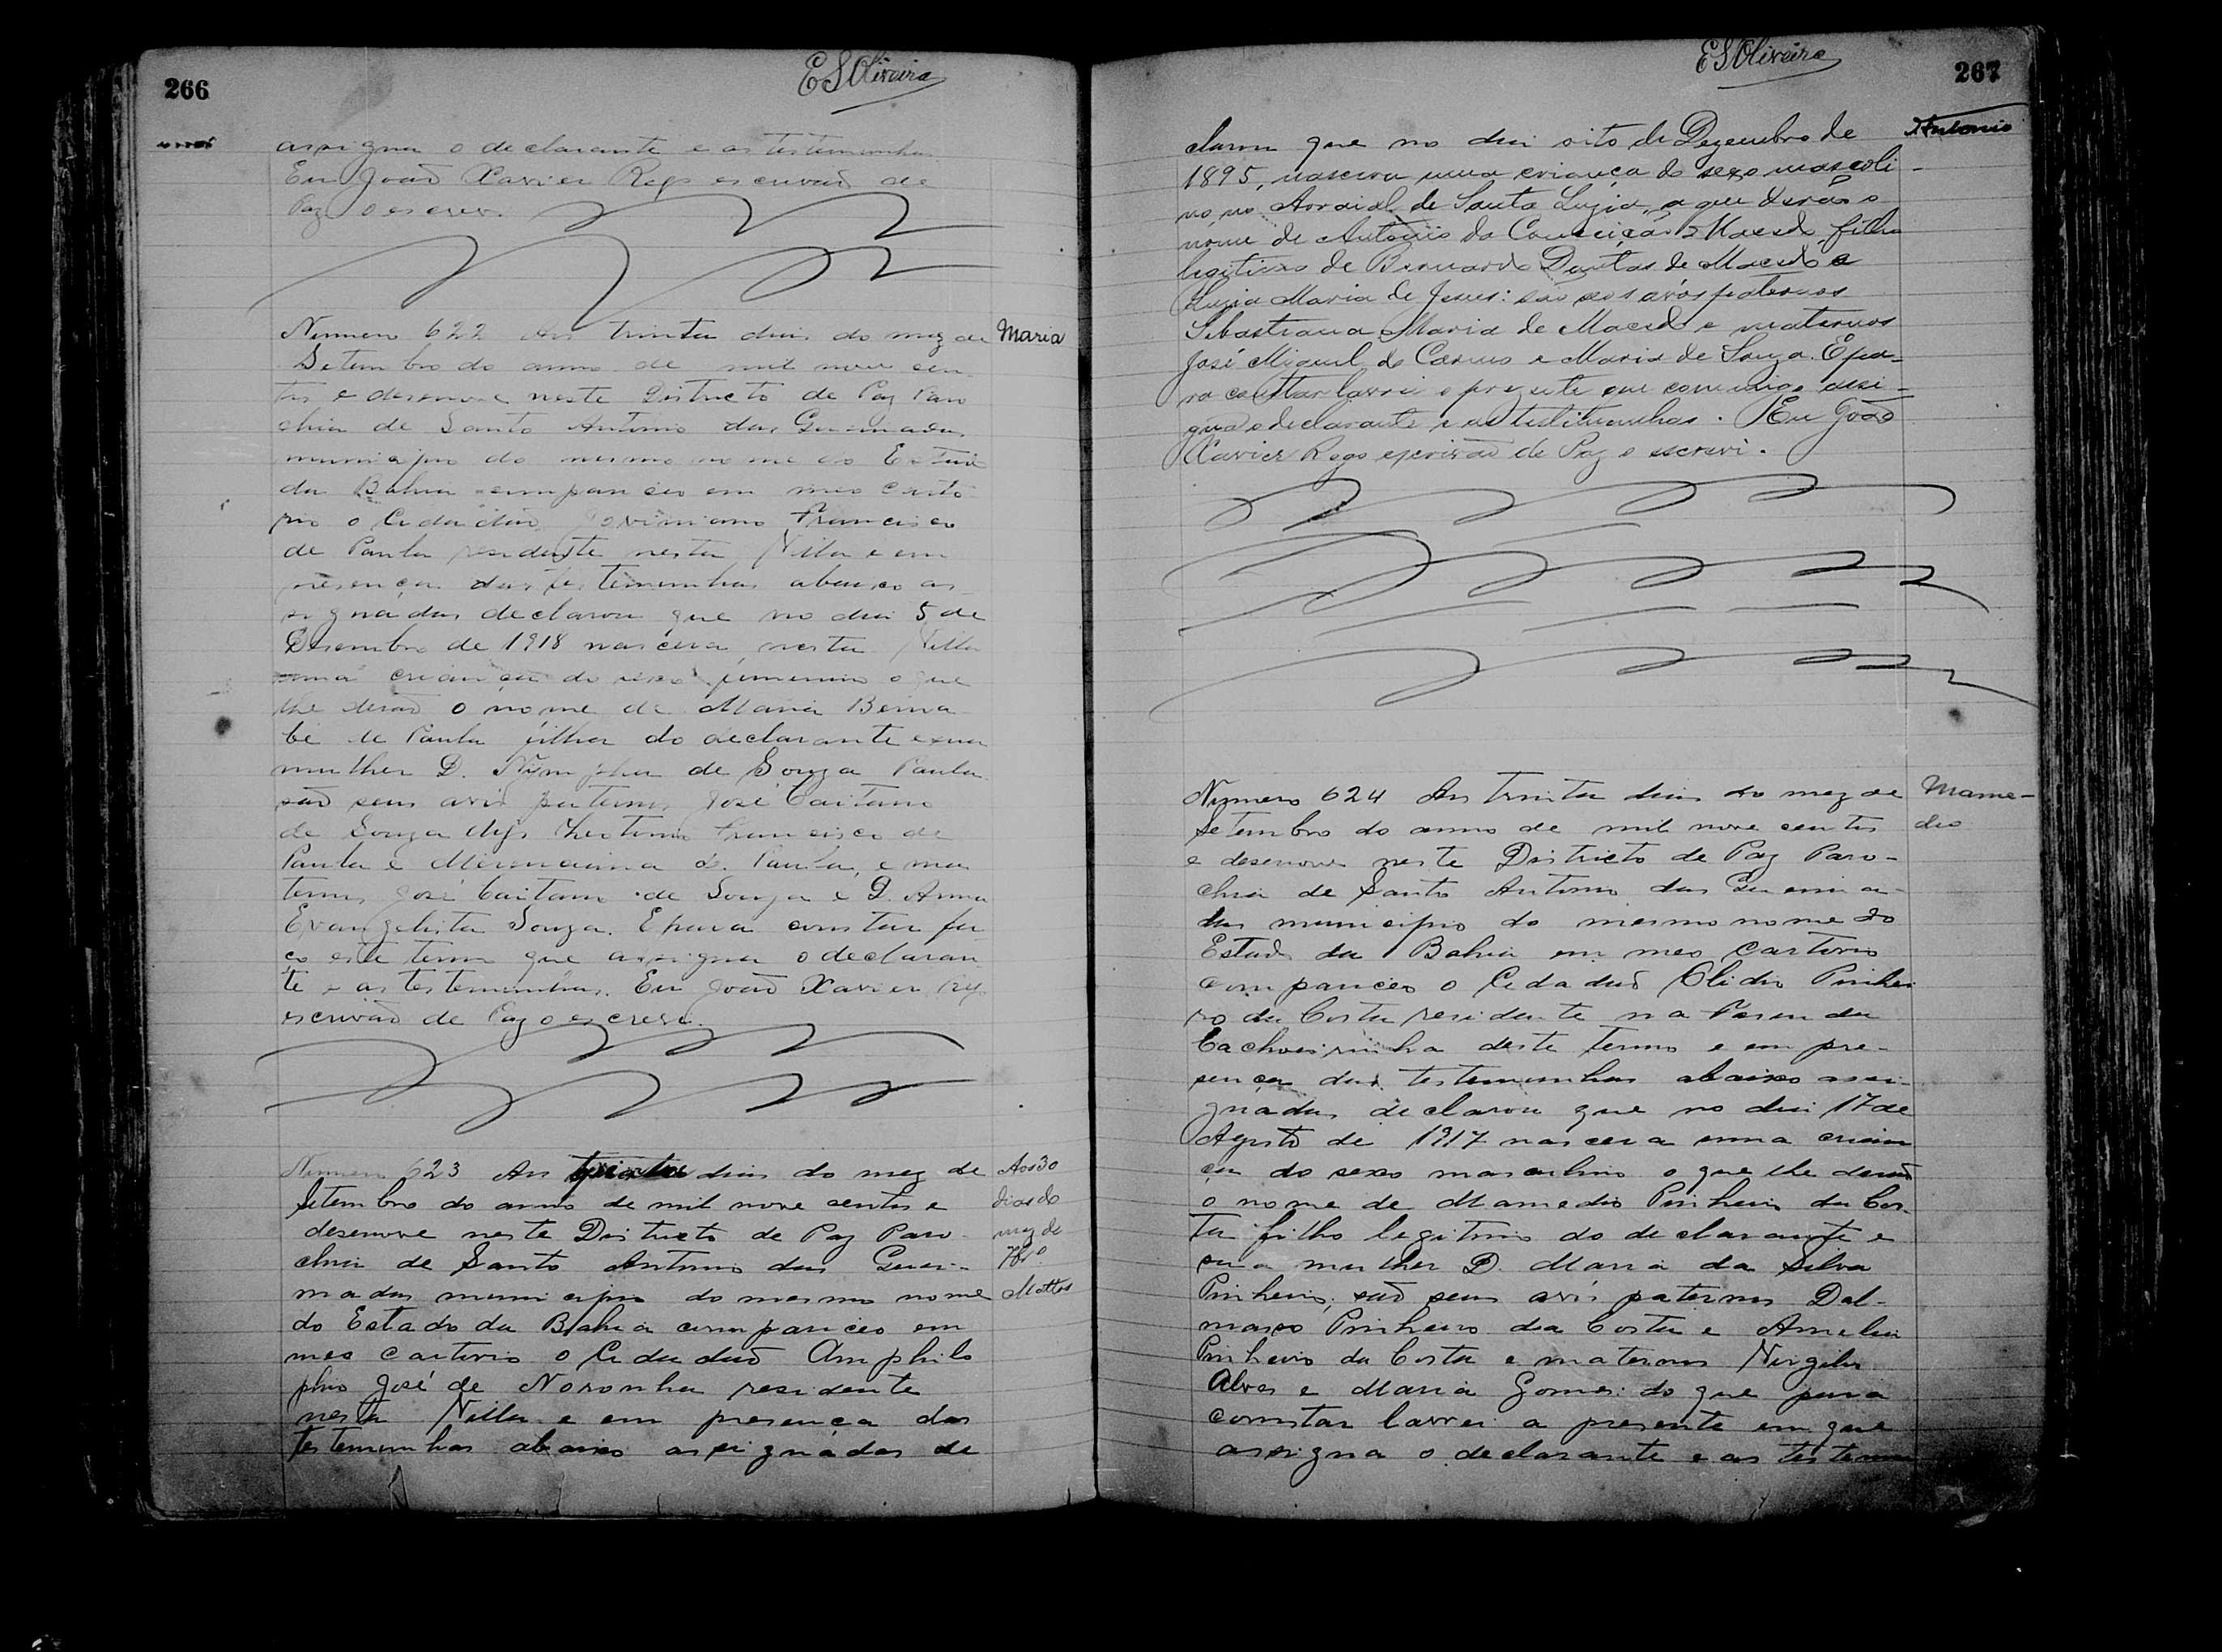 266
E S Oliveira
assigna o declarante e as testemunhas
Eu João Xavier Rego escrivaõ de
Paz o escrevi.
Numero 622 Aos trinta dias do mez de
Maria
Setembro do anno de mil nove cen
tos e desenove neste Districto de Paz Paro
chia de Santo Antonio das Queimadas
municipio do mesmo nome do Estado
da Bahia compareceo em meo carto
rio o Cidadaõ Francisco
de Paula residente nesta Villa e em
presença das testemunhas abaixo as
signadas declarou que no dia 5 de
Desembro de 1918 nascera nesta Villa
uma criança do sexo femenino o que
lhe deraõ o nome de Maria Berna
be de Paula filha do declarante e sua
mulher D. Nympha de Souza Paula
saõ seus avós paternos José Caitano
de Souza digo Francisco de
Paula e de Paula, e ma
ternos José Caitano de Souza e D. Anna
Evangelista Souza. E para constar fa
ço este termo que assigna o declaran
te e as testemunhas. Eu João Xavier Rego
escrivaõ de Paz o escrevi.
Numero 623 Aos trinta dias do mez de
Setembro do anno de mil nove centos e
desenove neste Districto de Paz Paro
chia de Santo Antonio das Quei-
madas municipio do mesmo nome
do Estado da Bahia compareceo em
meo cartorio o Cidadaõ Amphilo
phio José de Noronha residente
nesta Villa e em presença das
testemunhas abaixo assignadas de
Aos 30
dias do
mez de
7bro
Mattos
267
E S Oliveira
Antonio
clarou que no dia oito de Dezembro de
1895, nascera uma criança do sexo mascoli-
no no Arraial de Santa Luzia, a que derão o
nome de Antonio da Conceição Macedo, filho
legitimo de Bernardo Dantas de Macedo e
Luzia Maria de Jesus: são seos avós paternos
Sebastiana Maria de Macedo e maternos
José Miguel do Carmo e Maria de Souza. E pa-
ra constar lavrei o prezente que comigo assi-
gna o declarante e as testimunhas. Eu João
Xavier Rego escrivaõ de Paz o escrevi.
Numero 624 Aos trinta dias do mez de
Mame-
dio
Setembro do anno de mil nove centos
e desenove neste Districto de Paz Paro-
chia de Santo Antonio das Queima-
das municipio do mesmo nome do
Estado da Bahia em meo cartorio
compareceo o Cidadaõ Olidio Pinhei
ro da Costa residente na Fasenda
Cachoeirinha deste termo e em pre-
sença das testemunhas abaixo assi-
gnadas, declarou que no dia 17 de
Agosto de 1917 nascera uma crian
ça do sexo masculino o que lhe deraõ
o nome de Mamedio Pinheiro da Cos-
ta filho legitimo do declarante e
sua mulher D. Maria da Silva
Pinheiro; saõ seus avós paternos Dal-
maso Pinheiro da Costa e Amelia
Pinheiro da Costa e maternos Virgilio
Alves e Maria Gomes: do que para
constar lavrei a presente em que
assigna o declarante e as testemu